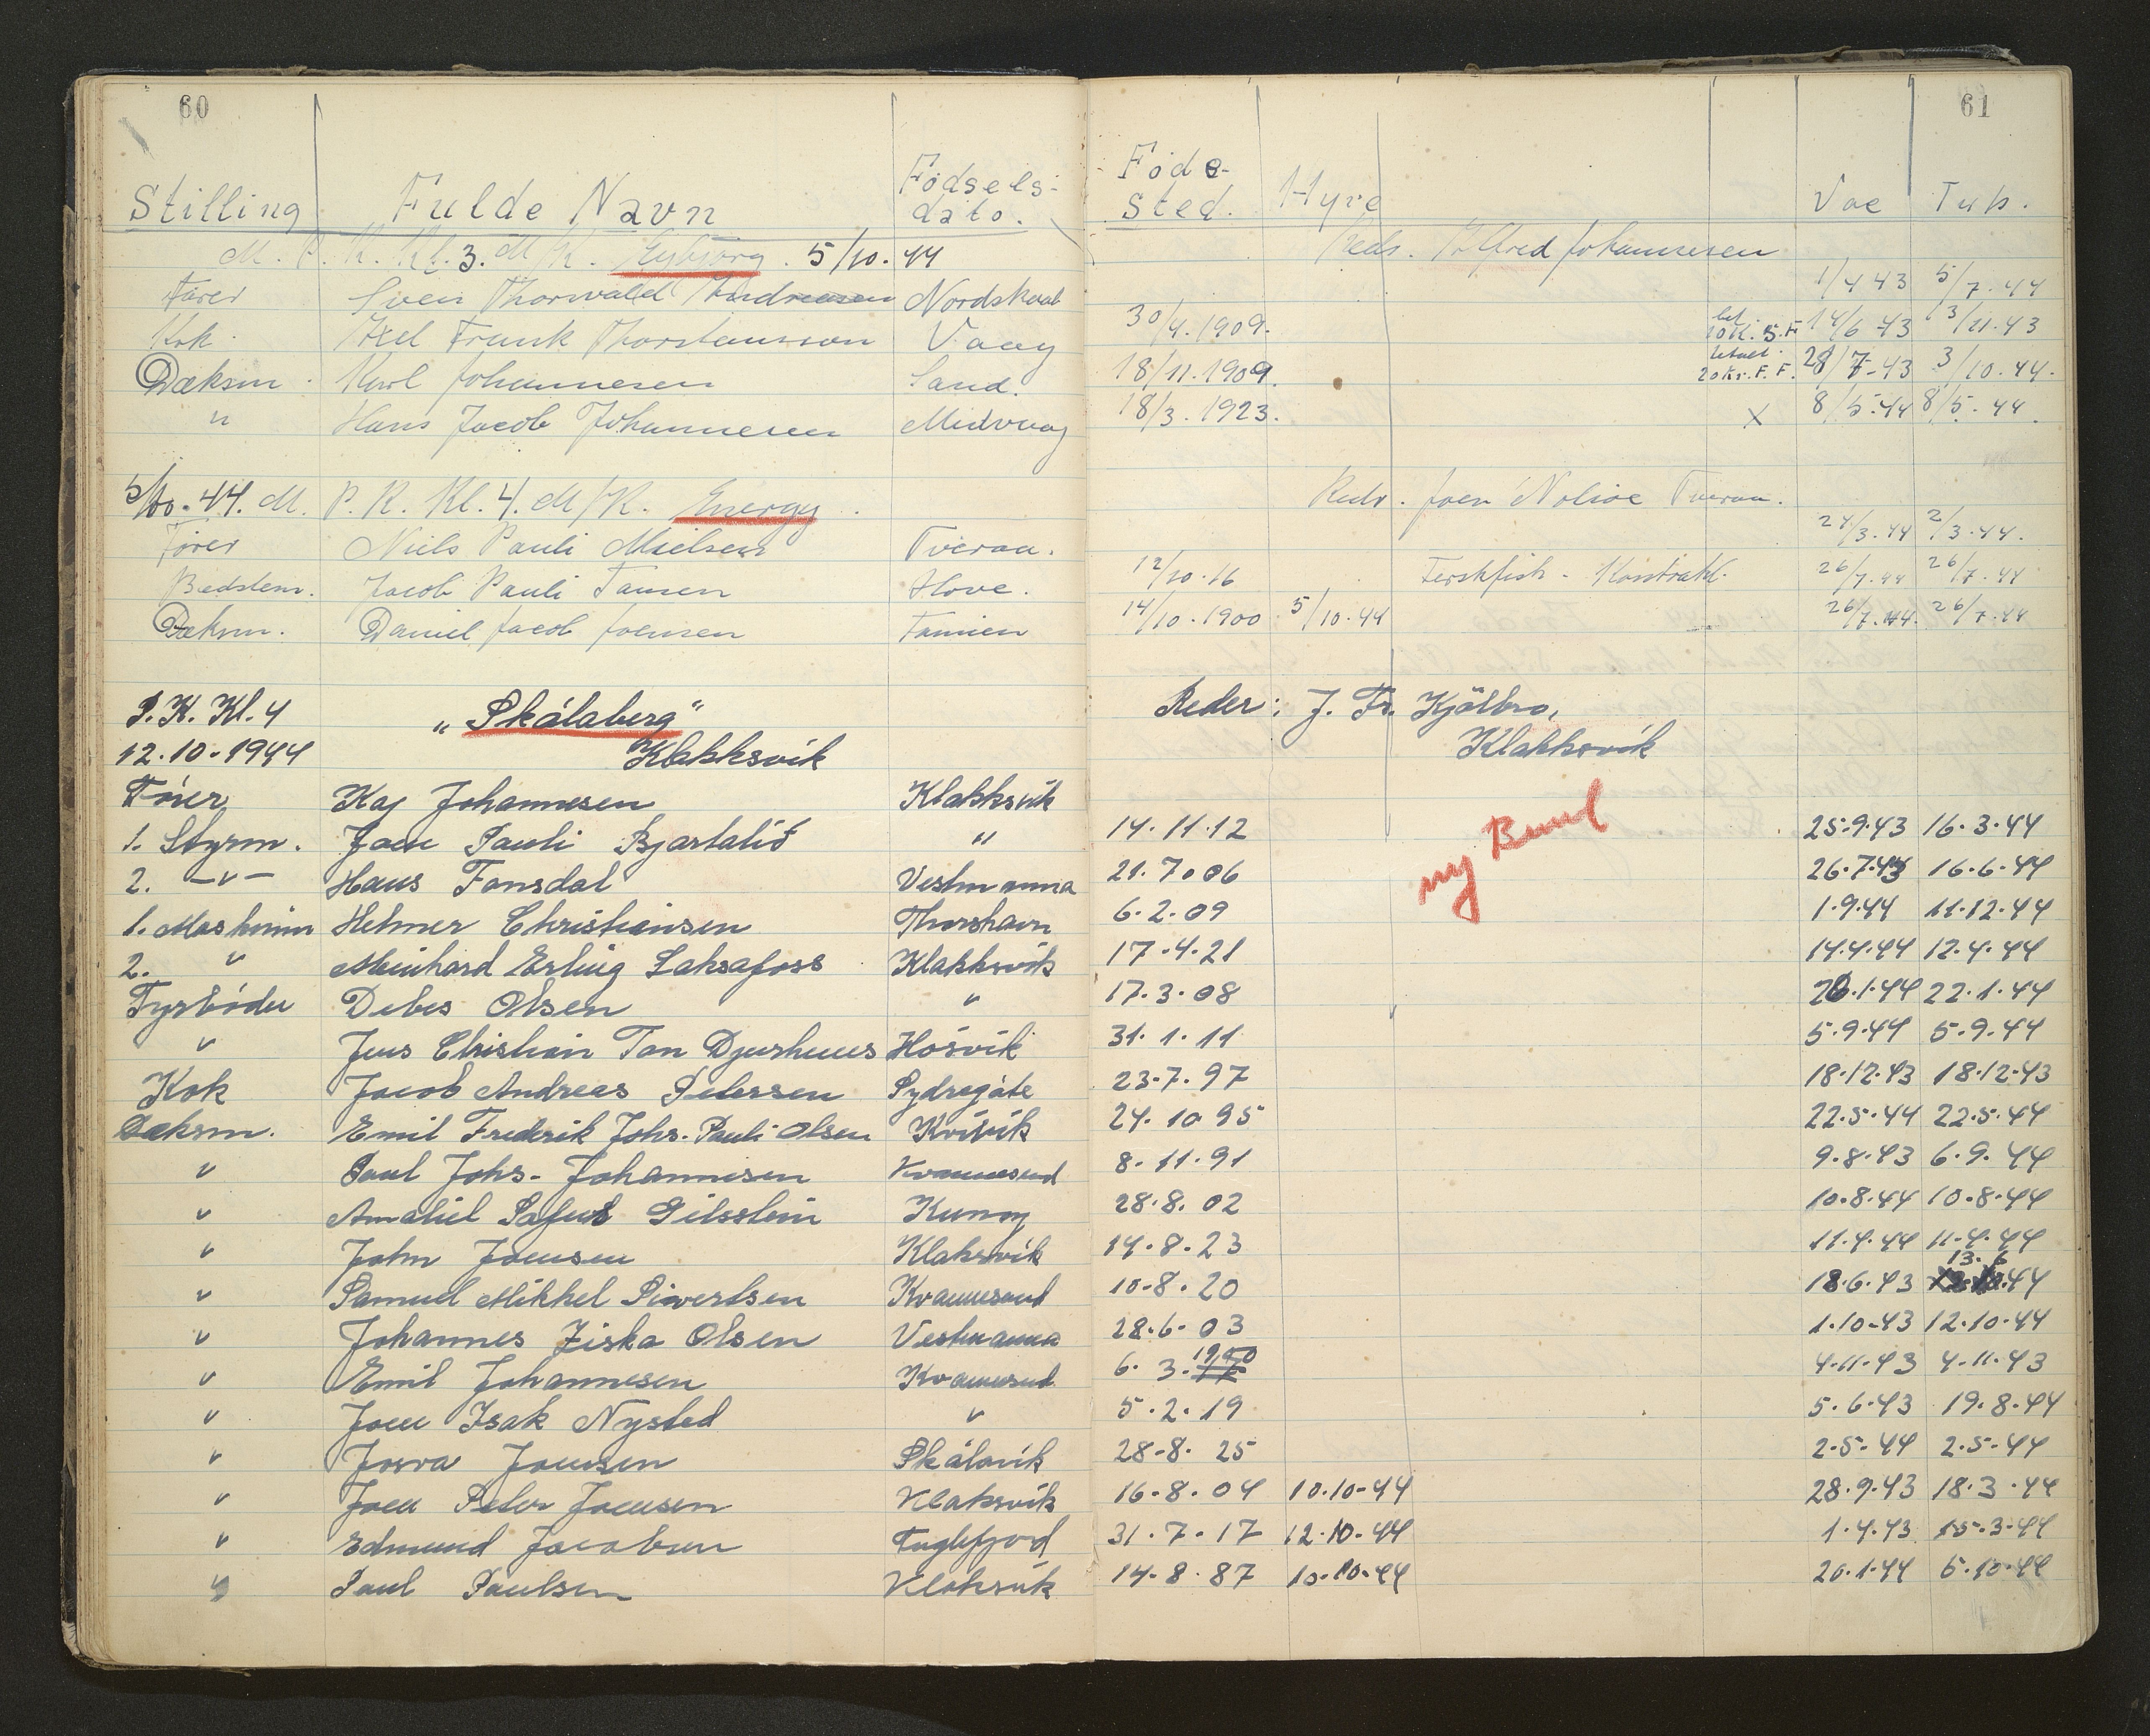 60
61
Stilling Fulde Navn Fødsels-
dato.
Føde-
sted. Hyre Vac Tub.
M. P. K. Kl. 3. M/K. Eybjørg. 5/10. 44 Johannesen
Fører Sven Thorwald Andreasen Nordskaal 1/4 43 5/7. 44
Kok. Axel Frank Thorsteinsson Vaag 30/4. 1909. 10 Kr. S. F. 14/6 43 3/11. 43
Dæksm. Karl Johannesen Sand. 18/11. 1909. 20 Kr. F. F. 28/7-43 3/10. 44.
" Hans Jacob Johannesen Midvaag 18/3. 1923. X 8/5. 44 8/5. 44.
5/10. 44. M. P. K. Kl. 4. M/K. Energy. Redr. Joen Nolsøe Tveraa.
Fører Niels Pauli Nielsen Tveraa. 24/3. 44 2/3. 44.
Bedstem. Jacob Pauli Hove. 12/10. 16 Ferskfisk-Kontrakt. 26/7. 44 26/7. 44
Dæksm. Daniel Jacob Joensen Famien 14/10. 1900 5/10. 44 26/7. 44. 26/7. 44
P. K. Kl. 4 "Skálaberg" Reder: J. Fr. Kjölbro,
12.10-1944 Klakksvík Klakksvík
Fører Kaj Johannesen Klakksvik
1. Styrm. Joen Pauli Bjartalíð " 14.11.12 ny Bund 25.9.43 16.3.44
2. -"- Hans Fonsdal Vestmanna 21.7.06 26.7.43 16.6.44
1. Maskinm Helmer Christiansen Thorshavn 6.2.09 1.9.44 11.12.44
2. " Meinhard Erling Laksafoss Klakksvik 17.4.21 14.4.44 12.4.44
Fyrbøder Debes Olsen " 17.3.08 26.1.44 22.1.44
" Jens Christian Tan Djurhuus Hósvík 31.1.11 5.9.44 5.9.44
Kok Jacob Andreas Petersen Sydregøte 23.7.97 18.12.43 18.12.43
Dæksm. Emil Frederik Johs. Pauli Olsen Kvívík 24.10 95 22.5.44 22.5.44
" Paul Johs. Johannesen Kvannesund 8.11.91 9.8.43 6.9.44
" Amaliel Gilsstein Kunoy 28.8.02 10.8.44 10.8.44
" John Joensen Klaksvík 14.8.23 11.4.44 11.4.44
" Samuel Mikkel Sivertsen Kvannesund 10-8.20 18.6.43 13.6 .44
" Johannes Ziska Olsen Vestmanna 28.6.03 1.10-43 12.10.44
" Emil Johannesen Kvannesund 6.3. 4-11.43 4-11.43
" Joen Isak Nysted " 5.2.19 5.6.43 19.8.44
" Josva Joensen Skálavík 28-8.25 2-5-44 2.5-44
" Joen Peter Joensen Klaksvík 16-8.04 10.10-44 28.9.43 18.3.44
" Edmund Jacobsen Fuglefjord 31.7.17 12.10-44 1.4.43 15.3-44
" Paul Paulsen Klaksvík 14-8.87 10.10-44 20.1.44 5.10-44